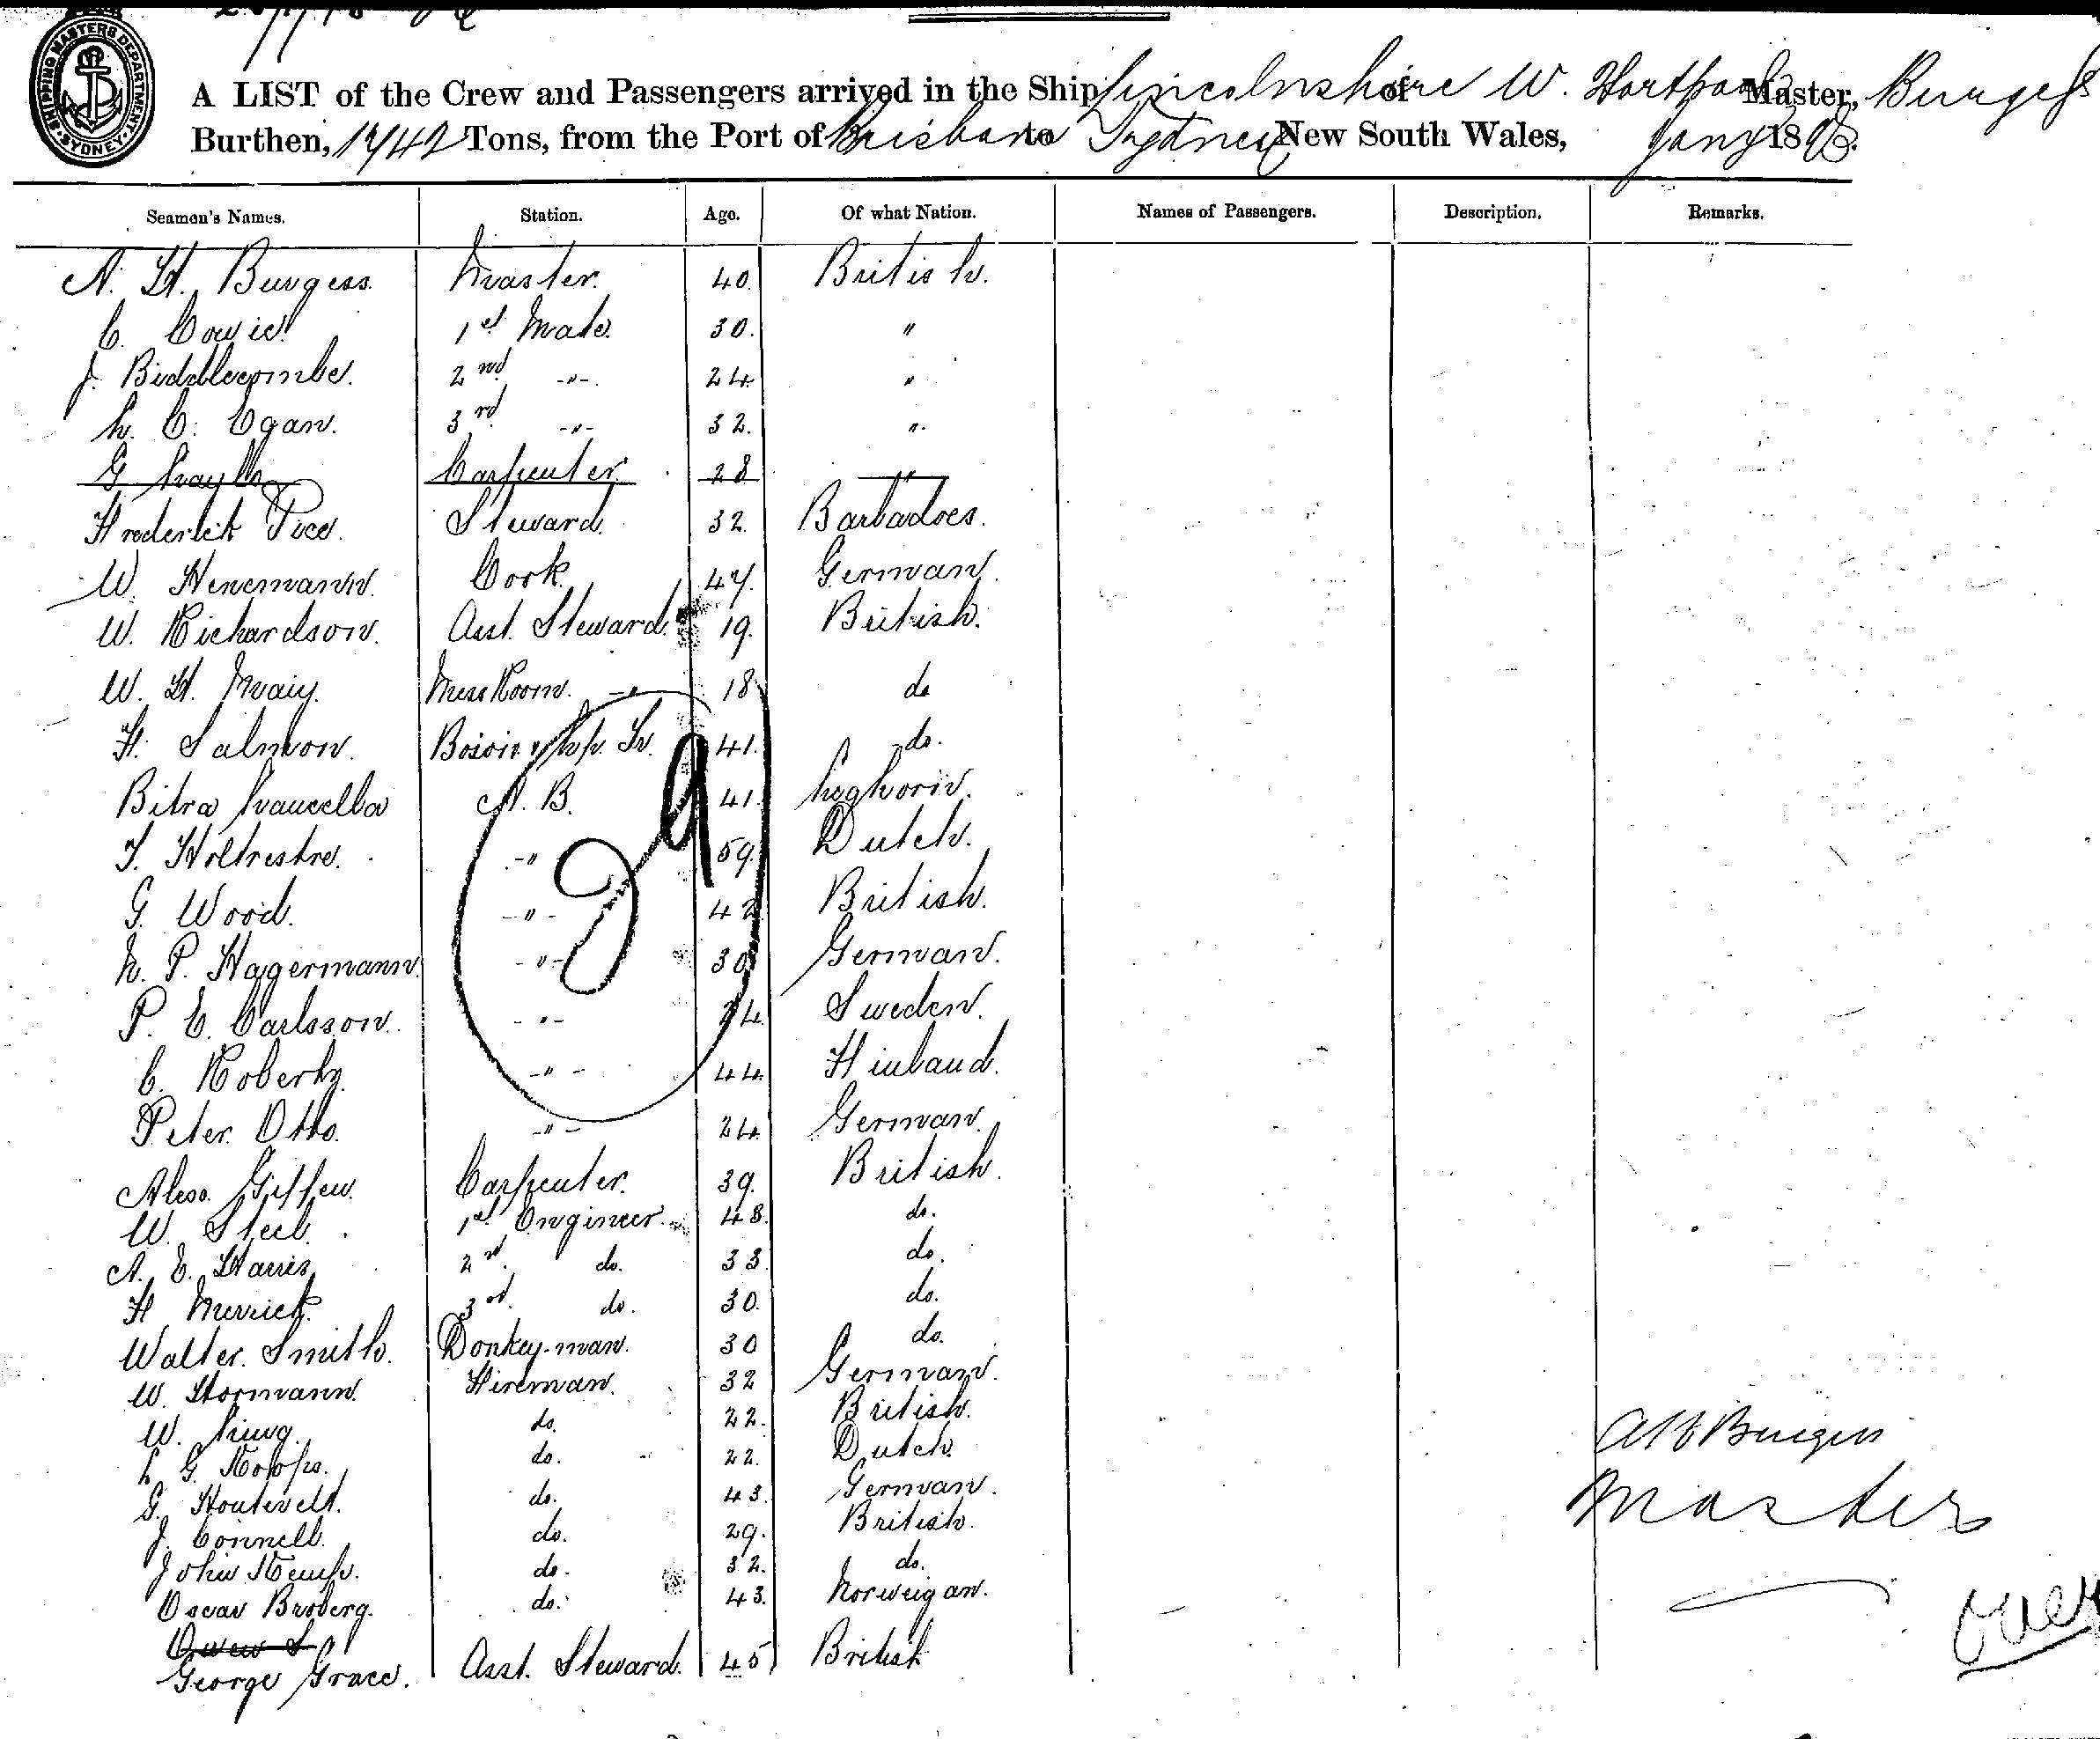 SHIPPING MASTERS DEPARTMENT. SYDNEY.
A LIST of the Crew and Passengers arrived in the Ship Lincolnshire of W. Hartpool Master, Burgess
Burthen, Tons, from the Port of Brisbane to Sydney New South Wales, Jany 1898.
Seamen's Names. Station. Age. Of what Nation. Names of Passengers. Description. Remarks.
A. H. Burgess. Master. 40. British.
C. Cowie. 1st Mate. 30. "
J. Biddlecombe. 2nd -"-. 24. "
L. C. Egan. 3rd -"- 32. ".
G Carpenter. 28 "
Frederick Pice. Steward. 32. Barbadoes.
W. Henemann. Cook. 47. German.
W. Richardson. Asst. Steward. 19. British.
W. H. May. Mess Room. -" 18 do
F. Salmon. 41. do.
Bitra A. B. 41. Leghorn.
29
-" 59. Dutch.
G. Wood. -"- 42 British.
P. Hagermann. -"- 30 German.
P. E. Carlsson. -"- 24. Sweden.
C. Robertz. -"- 44. Finland.
Peter Otto. -"- 24. German.
Alexr. Giffen. Carpenter. 39. British.
W. Steel. 1st Engineer. 48. do.
A. E. Harris 2nd. do. 33. do.
F Merrick. 3rd. do. 30. do.
Walter. Smith. Donkey-man. 30 do.
W. Hormann. Fireman. 32 German.
W. King. do. 22. British.
G. Koops. do. 22. Dutch.
G. Houtevelt. do. 43. German.
J. Connell. do. 29. British.
John Kemp. do. 32. do.
Oscar Broberg. do. 43. Norweigan.
Owen S
George Grace. Asst. Steward. 45 British
AH Burgess
Master
over